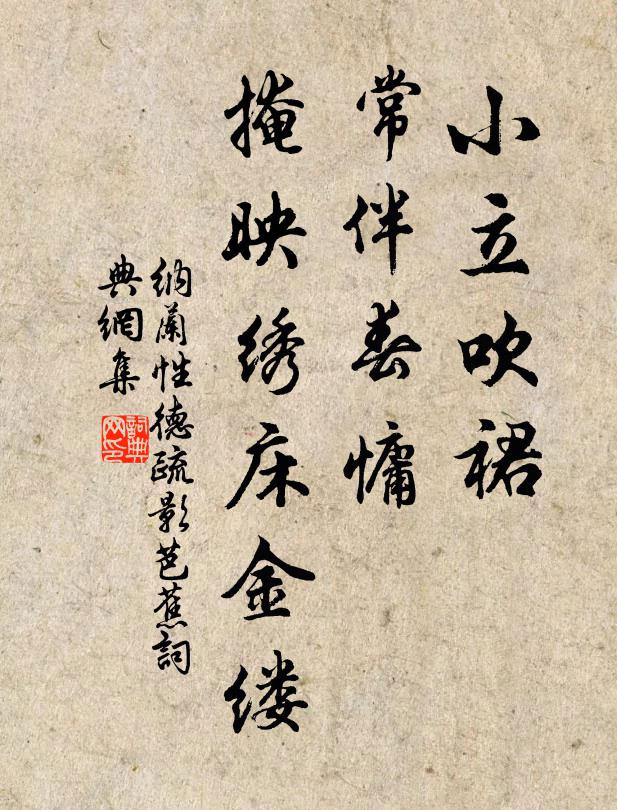 小立吹裙
常伴春慵
掩映绣床金缕
納蘭性德疏影芭蕉詞
典網集
詞典网印